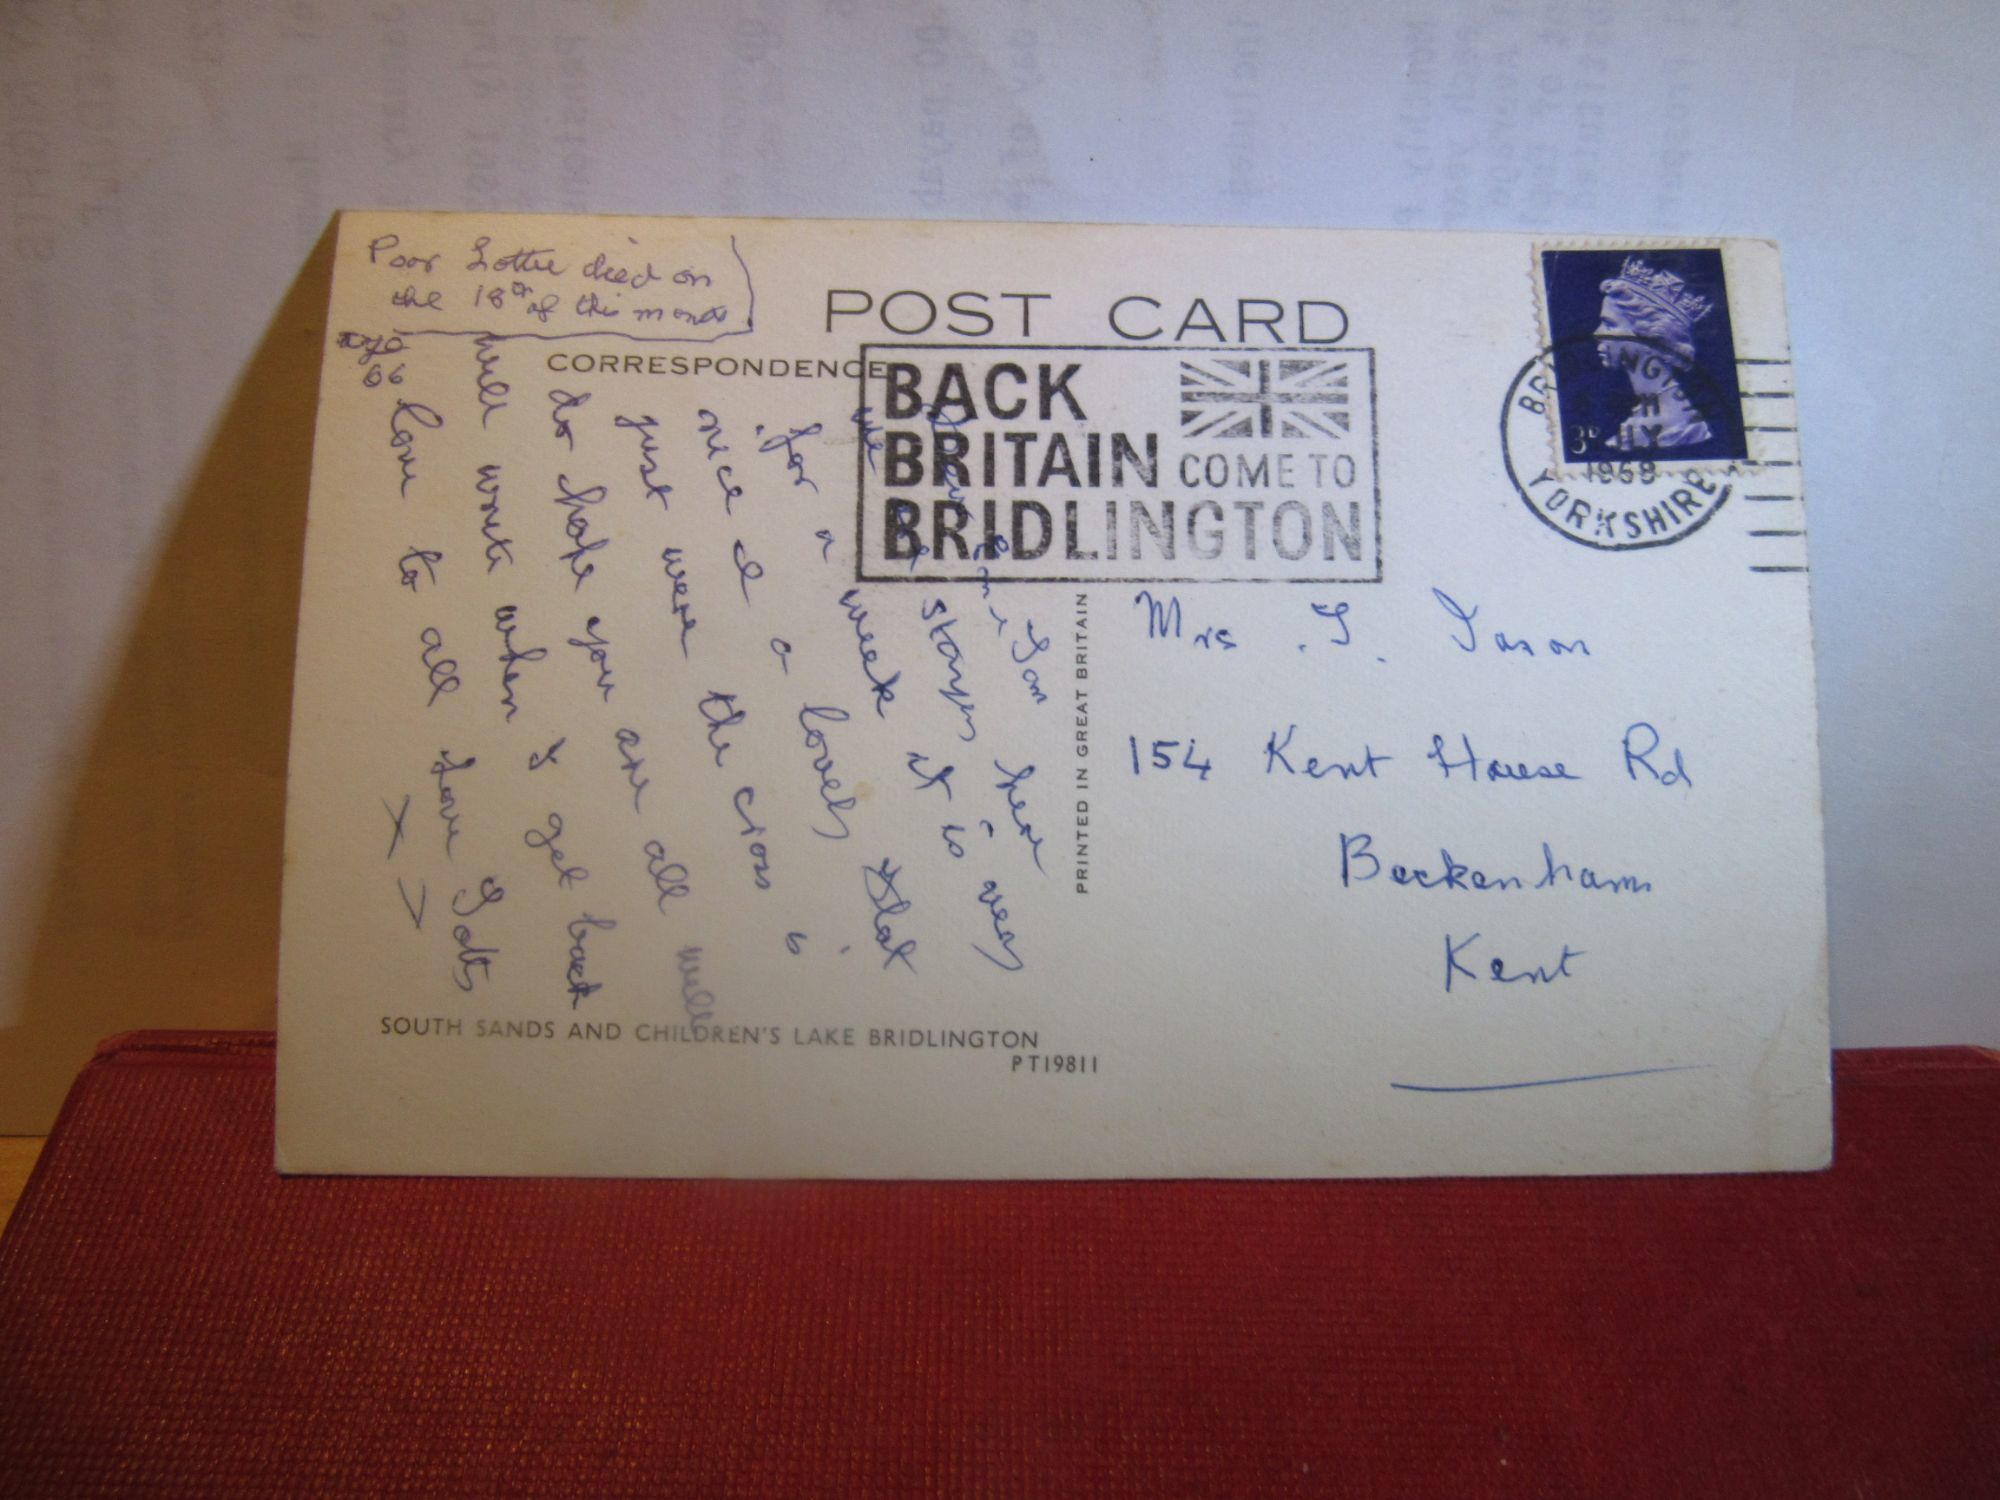 Poor Lottie died on
the 18th of this month
POST CARD
CORRESPONDENCE
BACK
BRITAIN COME TO
BRIDLINGTON
3D
YORKSHIRE
1968
Dear Emi
Tom here
we staying very
for a week it is
nice & a lovely flat
just were the cross is
do hope you are all well
will write when I get back
love to all love Lotty
X X
Mrs . T. Jason
154 Kent House Rd
Beckenham
Kent
PRINTED IN GREAT BRITAIN
SOUTH SANDS AND CHILDREN'S LAKE BRIDLINGTON
PT19811